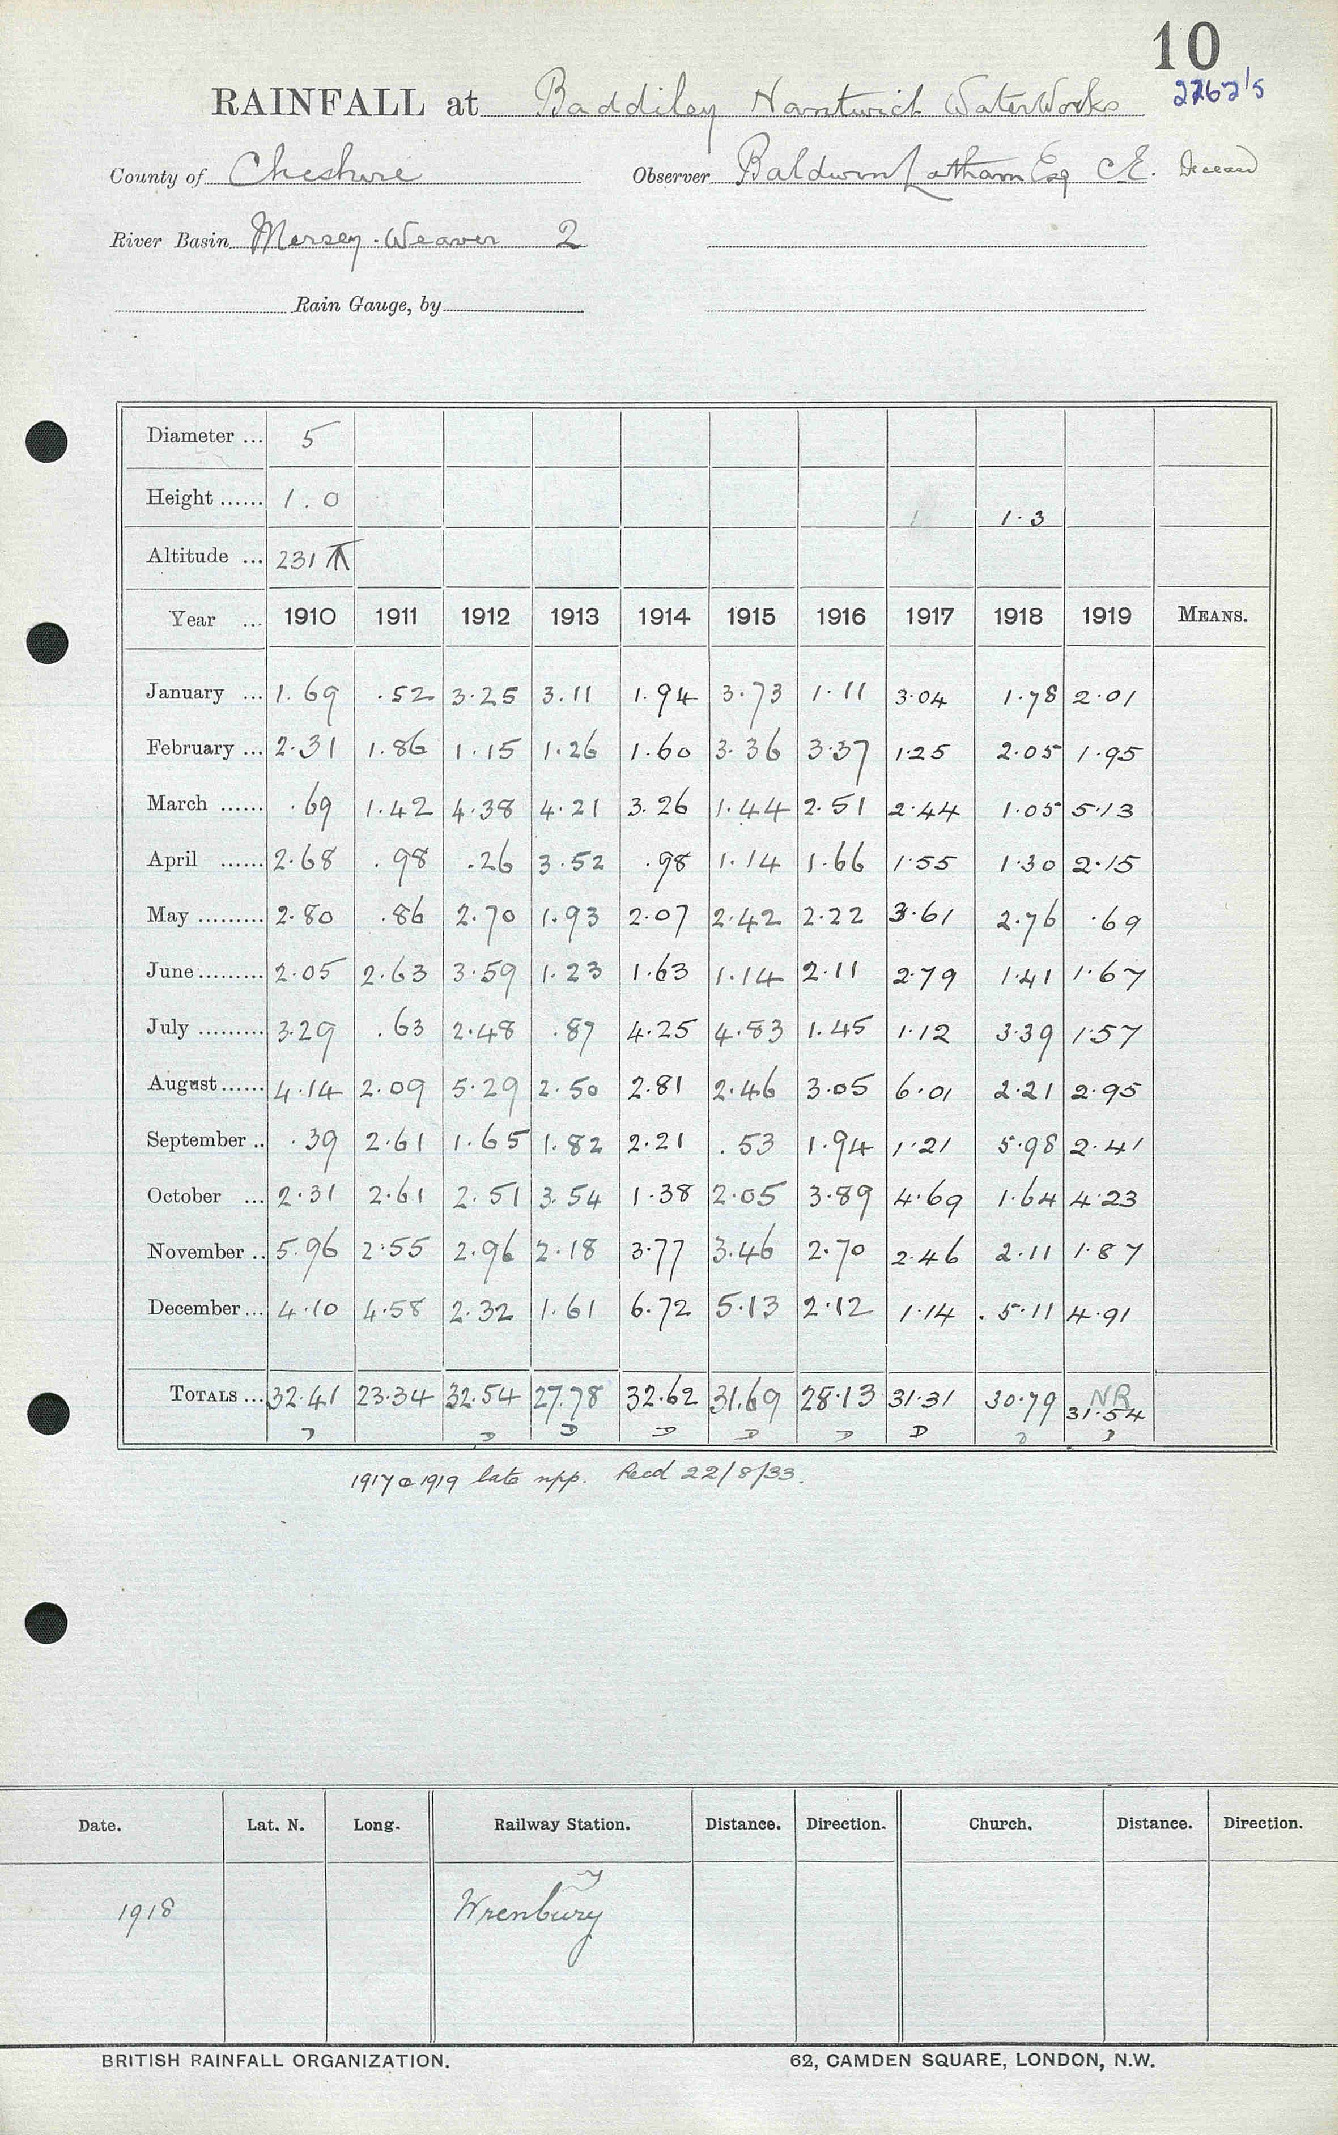 10
RAINFALL at Baddiley Nantwich WaterWorks 2262's
County of Cheshire Observer Baldwin Latham Esq C.E. Deceased
River Basin Mersey-Weaver 2
Rain Gauge, by
Diameter ... 5
Height ...... 1.0 1.3
Altitude ... 231
Year ... 1910 1911 1912 1913 1914 1915 1916 1917 1918 1919 MEANS.
January ... 1.69 .52 3.25 3.11 1.94 3.73 1.11 3.04 1.78 2.01
February ... 2.31 1.86 1.15 1.26 1.60 3.36 3.37 1.25 2.05 1.95
March ...... .69 1.42 4.38 4.21 3.26 1.44 2.51 2.44 1.05 5.13
April ...... 2.68 .98 .26 3.52 .98 1.14 1.66 1.55 1.30 2.15
May ......... 2.80 .86 2.70 1.93 2.07 2.42 2.22 3.61 2.76 .69
June ......... 2.05 2.63 3.59 1.23 1.63 1.14 2.11 2.79 1.41 1.67
July ......... 3.29 .63 2.48 .87 4.25 4.83 1.45 1.12 3.39 1.57
August ...... 4.14 2.09 5.29 2.50 2.81 2.46 3.05 6.01 2.21 2.95
September .. .39 2.61 1.65 1.82 2.21 .53 1.94 1.21 5.98 2.41
October ... 2.31 2.61 2.51 3.54 1.38 2.05 3.89 4.69 1.64 4.23
November .. 5.96 2.55 2.96 2.18 3.77 3.46 2.70 2.46 2.11 1.87
December ... 4.10 4.58 2.32 1.61 6.72 5.13 2.12 1.14 5.11 4.91
TOTALS ... 32.41 23.34 32.54 27.78 32.62 31.69 28.13 31.31 30.79 NR 31.54
D D D D D D D
1917 & 1919 late Recd 22/8/33.
Date. Lat. N. Long. Railway Station. Distance. Direction. Church. Distance. Direction.
1918 Wrenbury
BRITISH RAINFALL ORGANIZATION. 62, CAMDEN SQUARE, LONDON, N.W.